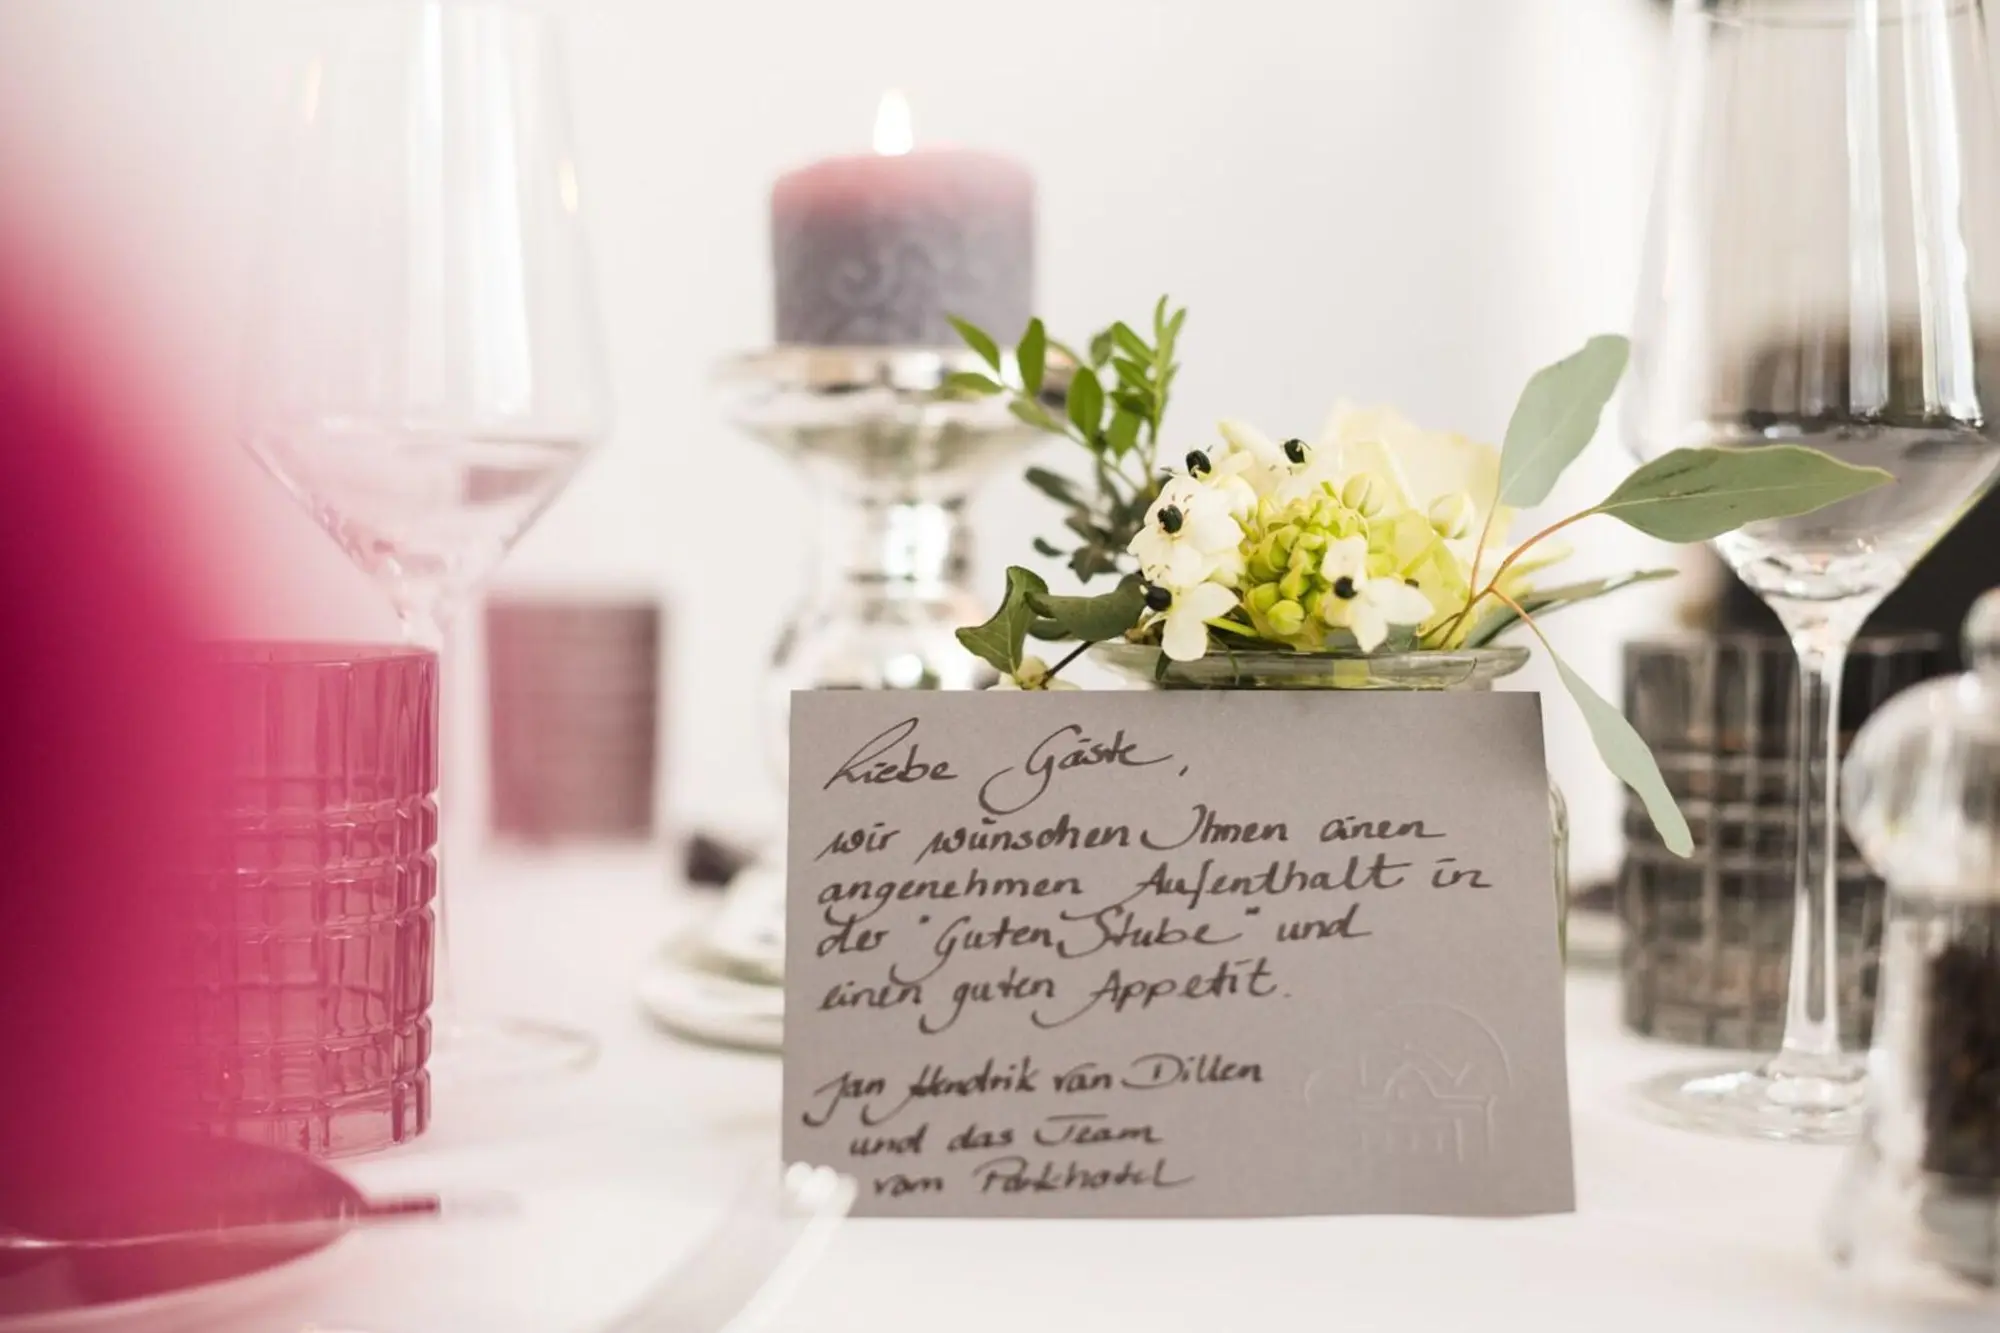 Liebe Gäste,
wir wünschen Ihnen einen
angenehmen Aufenthalt in
der "Guten Stube" und
einen guten Appetit.
Jan Hendrik van Dillen
und das Team
vom Parkhotel